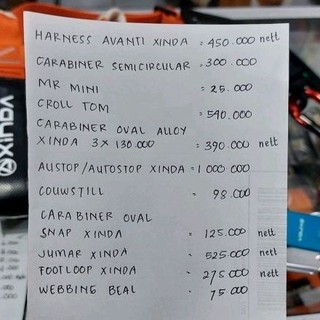 HARNESS AVANTI XINDA = 450.000 nett
CARABINER SEMICIRCULAR = 300.000
MR MINI = 25.000
CROLL TOM = 540.000
CARABINER OVAL ALLOY
XINDA 3 X 130.000 = 390.000 nett
ALISTOP/AUTOSTOP XINDA = 1 000 000
COUWSTILL = 98.000
CARABINER OVAL
SNAP XINDA = 125.000 nett
JUMAR XINDA = 525.000 nett
FOOTLOOP XINDA = 275 000 nett
WEBBING BEAL = 75 000
XINDA